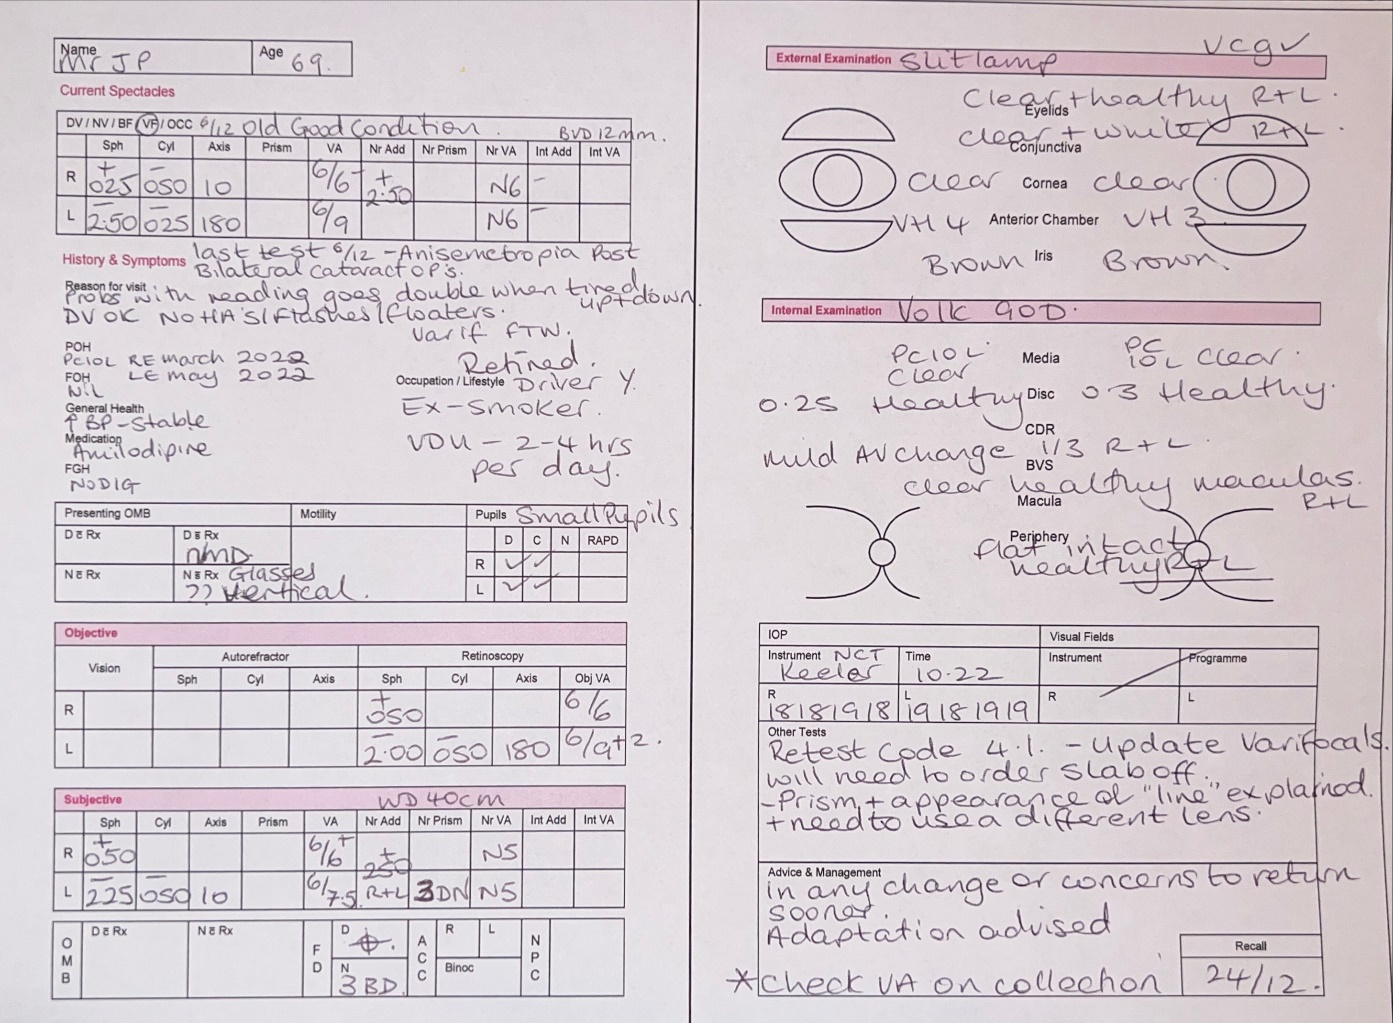 Name Mr JP Age 69.
Current Spectacles
DV / NV / BF / VF / OCC 6/12 Old Good Condition. BVD 12mm.
Sph Cyl Axis Prism VA Nr Add Nr Prism Nr VA Int Add Int VA
R +025 -050 10 6/6- +2.50 N6 -
L -2.50 -025 180 6/9 N6 -
History & Symptoms last test 6/12 - Anisemetropia Post
Bilateral Cataract OP's.
Reason for visit
Probs with reading goes double when tired
up+down.
DV OK No HA's/Flashes/floaters.
Varif FTW.
POH
PCIOL RE march 2022
LE may 2022
FOH
Nil
Retired.
Occupation / Lifestyle Driver Y.
Ex-smoker.
VDU - 2-4 hrs
per day.
General Health
↑BP-Stable
Medication
Amilodipine
FGH
NoDIG
Presenting OMB Motility Pupils Small Pupils
D c̄ Rx D s̄ Rx
NMD
N c̄ Rx N s̄ Rx Glasses
?? Vertical.
D C N RAPD
R ✓ ✓
L ✓ ✓
Objective
Vision Autorefractor Retinoscopy
Sph Cyl Axis Sph Cyl Axis Obj VA
R +050 6/6
L -2.00 -050 180 6/9+2.
Subjective WD 40cm
Sph Cyl Axis Prism VA Nr Add Nr Prism Nr VA Int Add Int VA
R +050 6/6+ +250 N5
L -225 -050 10 6/7.5 R+L 3DN N5
OMB D c̄ Rx N c̄ Rx FD D ACC R L NPC
N 3BD. Binoc
vcgv
External Examination Slitlamp
Clear + healthy R+L.
Eyelids
clear + white R+L.
Conjunctiva
clear Cornea clear
VH 4 Anterior Chamber VH 3
Brown Iris Brown.
Internal Examination Volk 90D.
PCIOL Clear Media PC IOL Clear.
0.25 Healthy Disc 0.3 Healthy.
CDR
mild AV change 1/3 R+L.
BVS
clear healthy maculas.
R+L
Macula
Periphery
flat intact
healthy R+L
IOP Visual Fields
Instrument NCT Keeler Time 10.22 Instrument Programme
R 18 18 19 18 L 19 18 19 19 R L
Other Tests
Retest Code 4.1. - update Varifocals.
will need to order slab off.
- Prism + appearance of "line" explained.
+ need to use a different lens.
Advice & Management
in any change or concerns to return
sooner.
Adaptation advised
*check VA on collection
Recall
24/12.